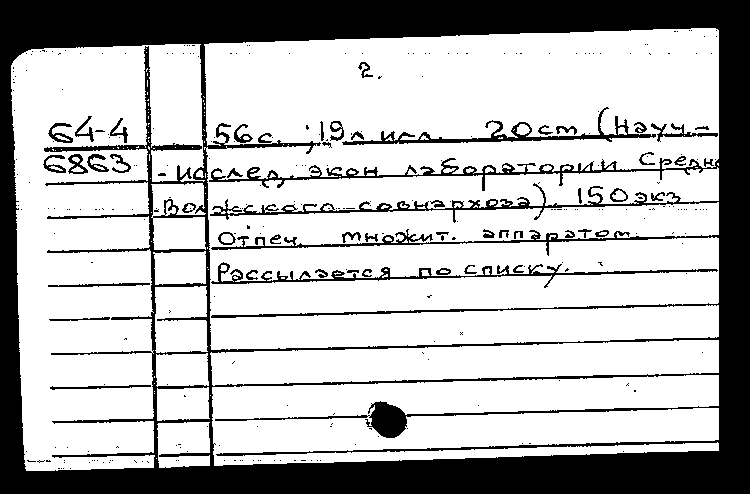 2.
64-4 56с. ; 19л илл. 20см. (Науч.-
6863 -исслед. экон лаборатории Средне
-Волжского совнархоза). 150экз
Отпеч. множит. аппаратом.
Рассылается по списку.